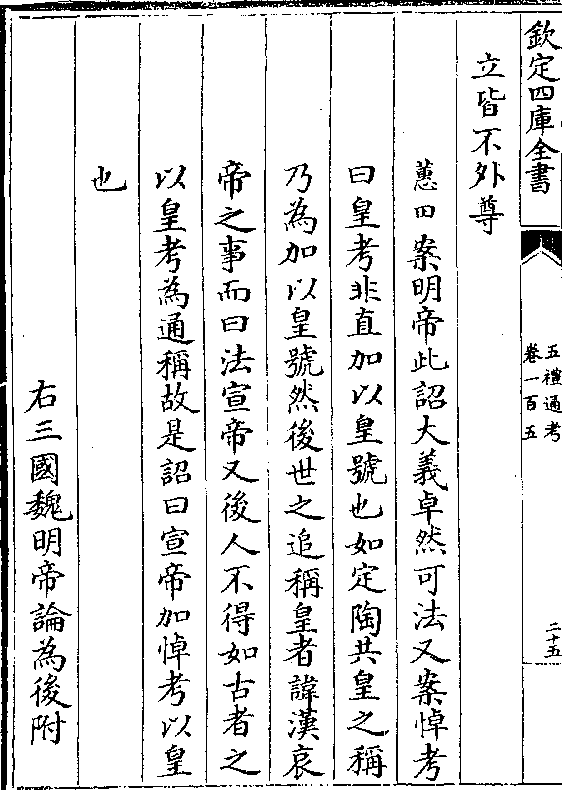 欽定四庫全書
五禮通考
卷一百五
二十五
立皆不外尊
蕙田案明帝此詔大義卓然可法又案悼考
曰皇考非直加以皇號也如定陶共皇之稱
乃為加以皇號然後世之追稱皇者諱漢哀
帝之事而曰法宣帝又後人不得如古者之
以皇考為通稱故是詔曰宣帝加悼考以皇
也
右三國魏明帝論為後附